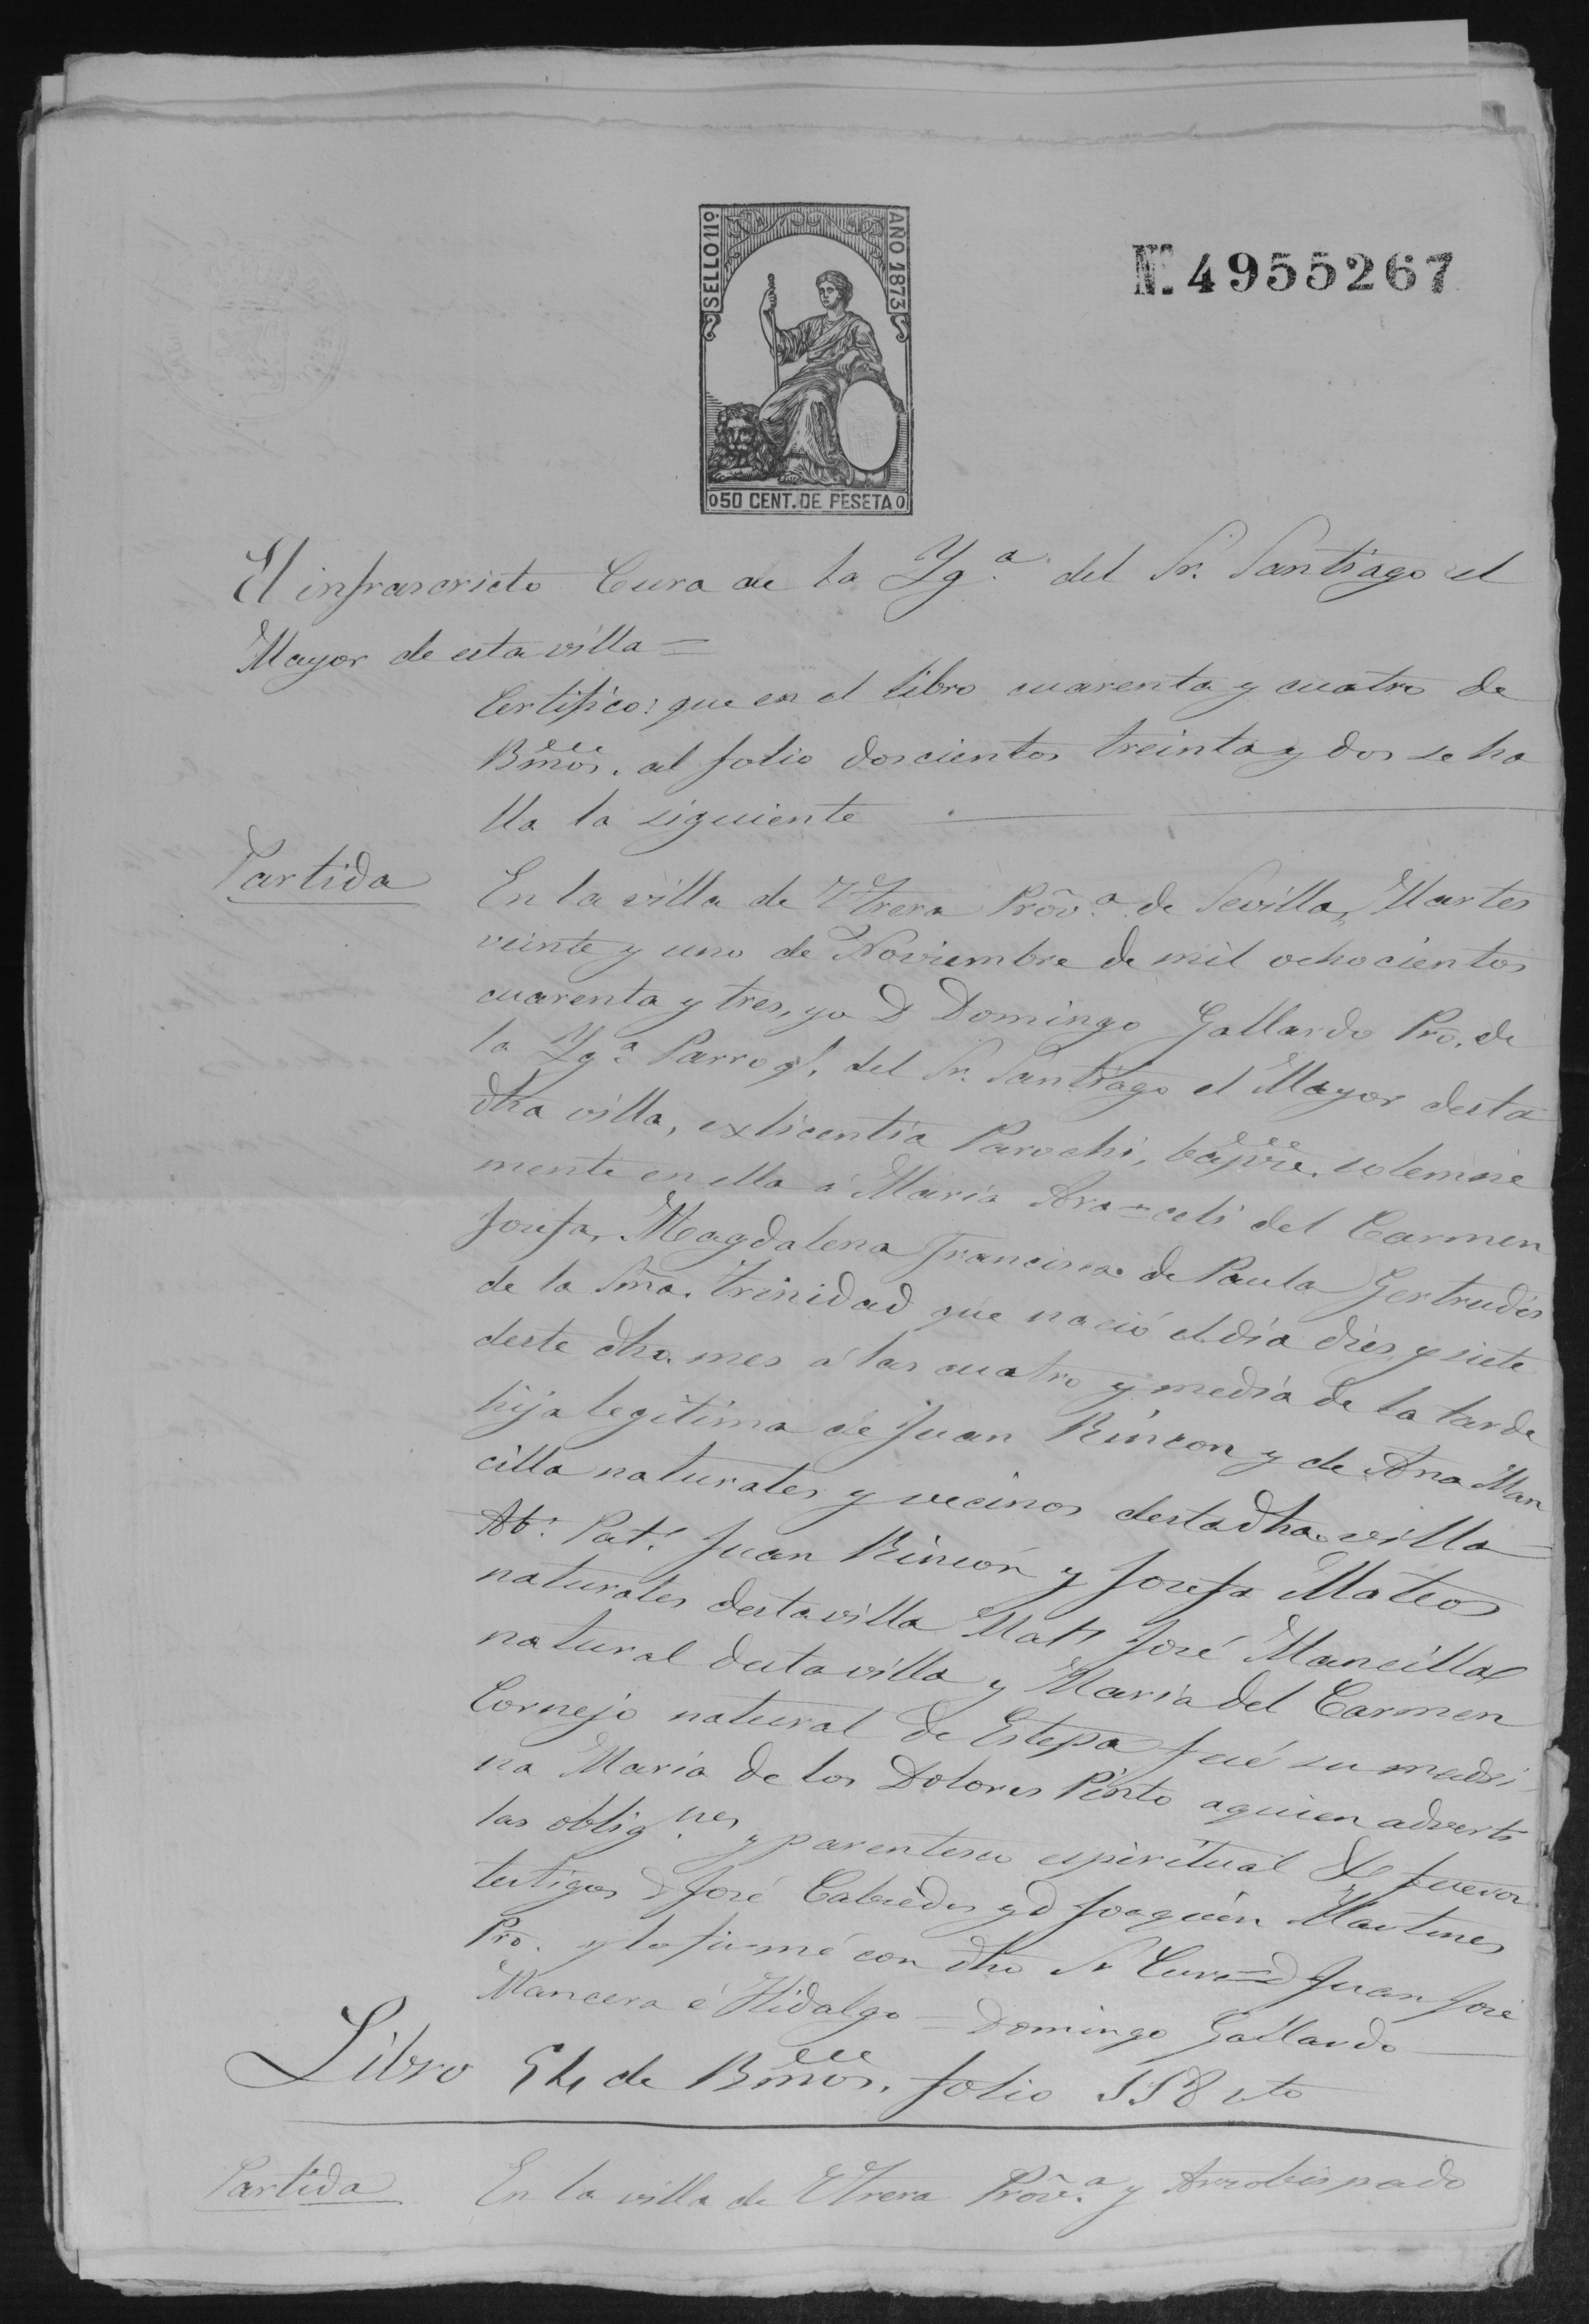 SELLO 11º
AÑO 1873
50 CENT. DE PESETA
Nº. 4955267
El infrascricto Cura de la Yg.ª del Sr. Santiago el
Mayor de esta villa =
Certifico: que en el libro cuarenta y cuatro de
Bmos. al folio doscientos treinta y dos se ha
lla la siguiente
Partida
En la villa de Utrera Prov.ª de Sevilla, Martes
veinte y uno de Noviembre de mil ochocientos
cuarenta y tres, yo D Domingo Gallardo Pro. de
la Yg.ª Parroq.l del Sr. Santiago el Mayor desta
dha villa, ex licentia Parochi, bapce. solemne
mente en ella á María Ara-celi del Carmen
Josefa, Magdalena Francisca de Paula Gertrudis
de la Sma. Trinidad que nació el día dies y siete
deste dho. mes á las cuatro y media de la tarde
hija legitima de Juan Rincon y de Ana Man
cilla naturales y vecinos desta dha villa =
Ab.s Pat.s Juan Rincon y Josefa Mateos
naturales desta villa Mat.s José Mancilla
natural desta villa y María del Carmen
Cornejo natural de Estepa fué su madri
na María de los Dolores Pinto a quien adverti
las oblig.nes y parentesco espiritual & fueron
testigos D José Cabredes y D Joaquin Martines
Pro. y lo firmé con dho Sr Cura = D Juan José
Mancera é Hidalgo = Domingo Gallardo
Libro 54 de Bmos. folio 558 vto
Partida
En la villa de Utrera Prov.ª y Arzobispado